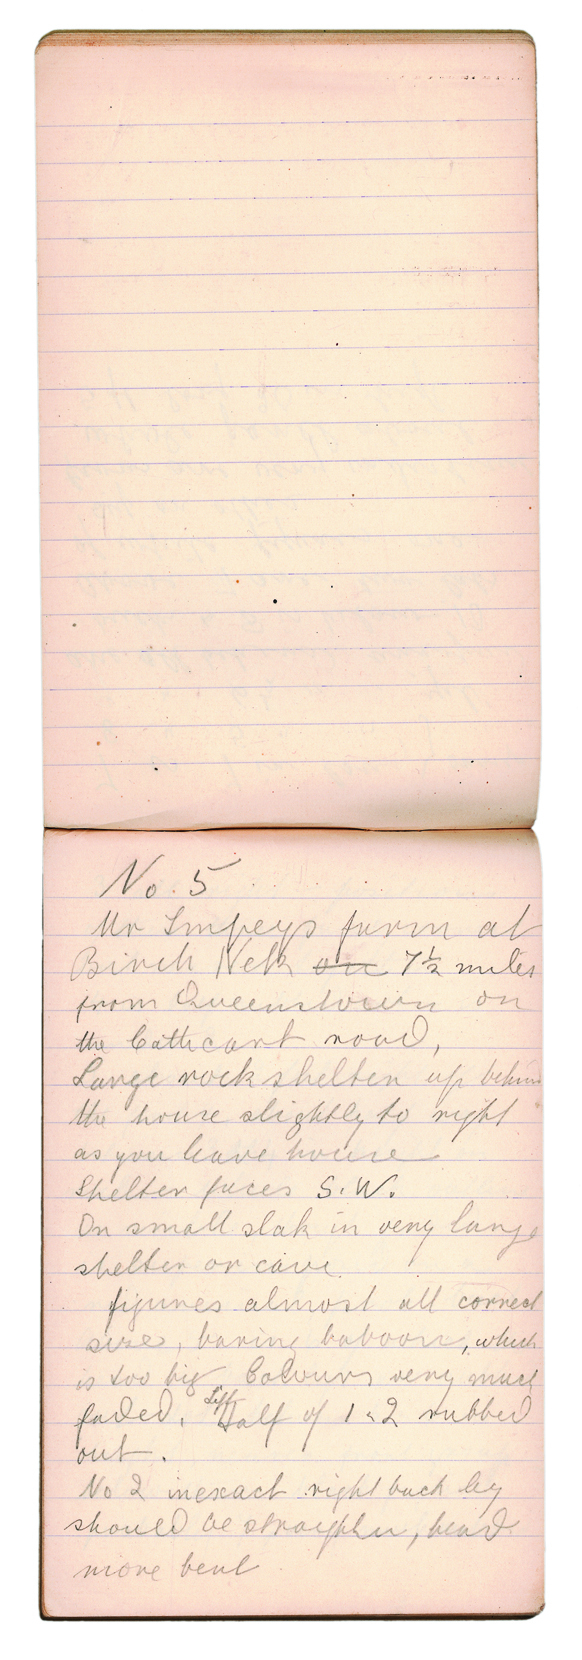 No. 5
Mr Impeys farm at
Birch Nek on 7½ miles
from Queenstown on
the Cathcart road,
Large rock shelter up behind
the house slightly to right
as you leave house
Shelter faces S.W.
On small slab in very large
shelter or cave
figures almost all correct
size, baring baboon, which
is too big. Colours very much
faded. Left Half of 1 & 2 rubbed
out.
No 2 inexact right back leg
should be straighter, head
more bent